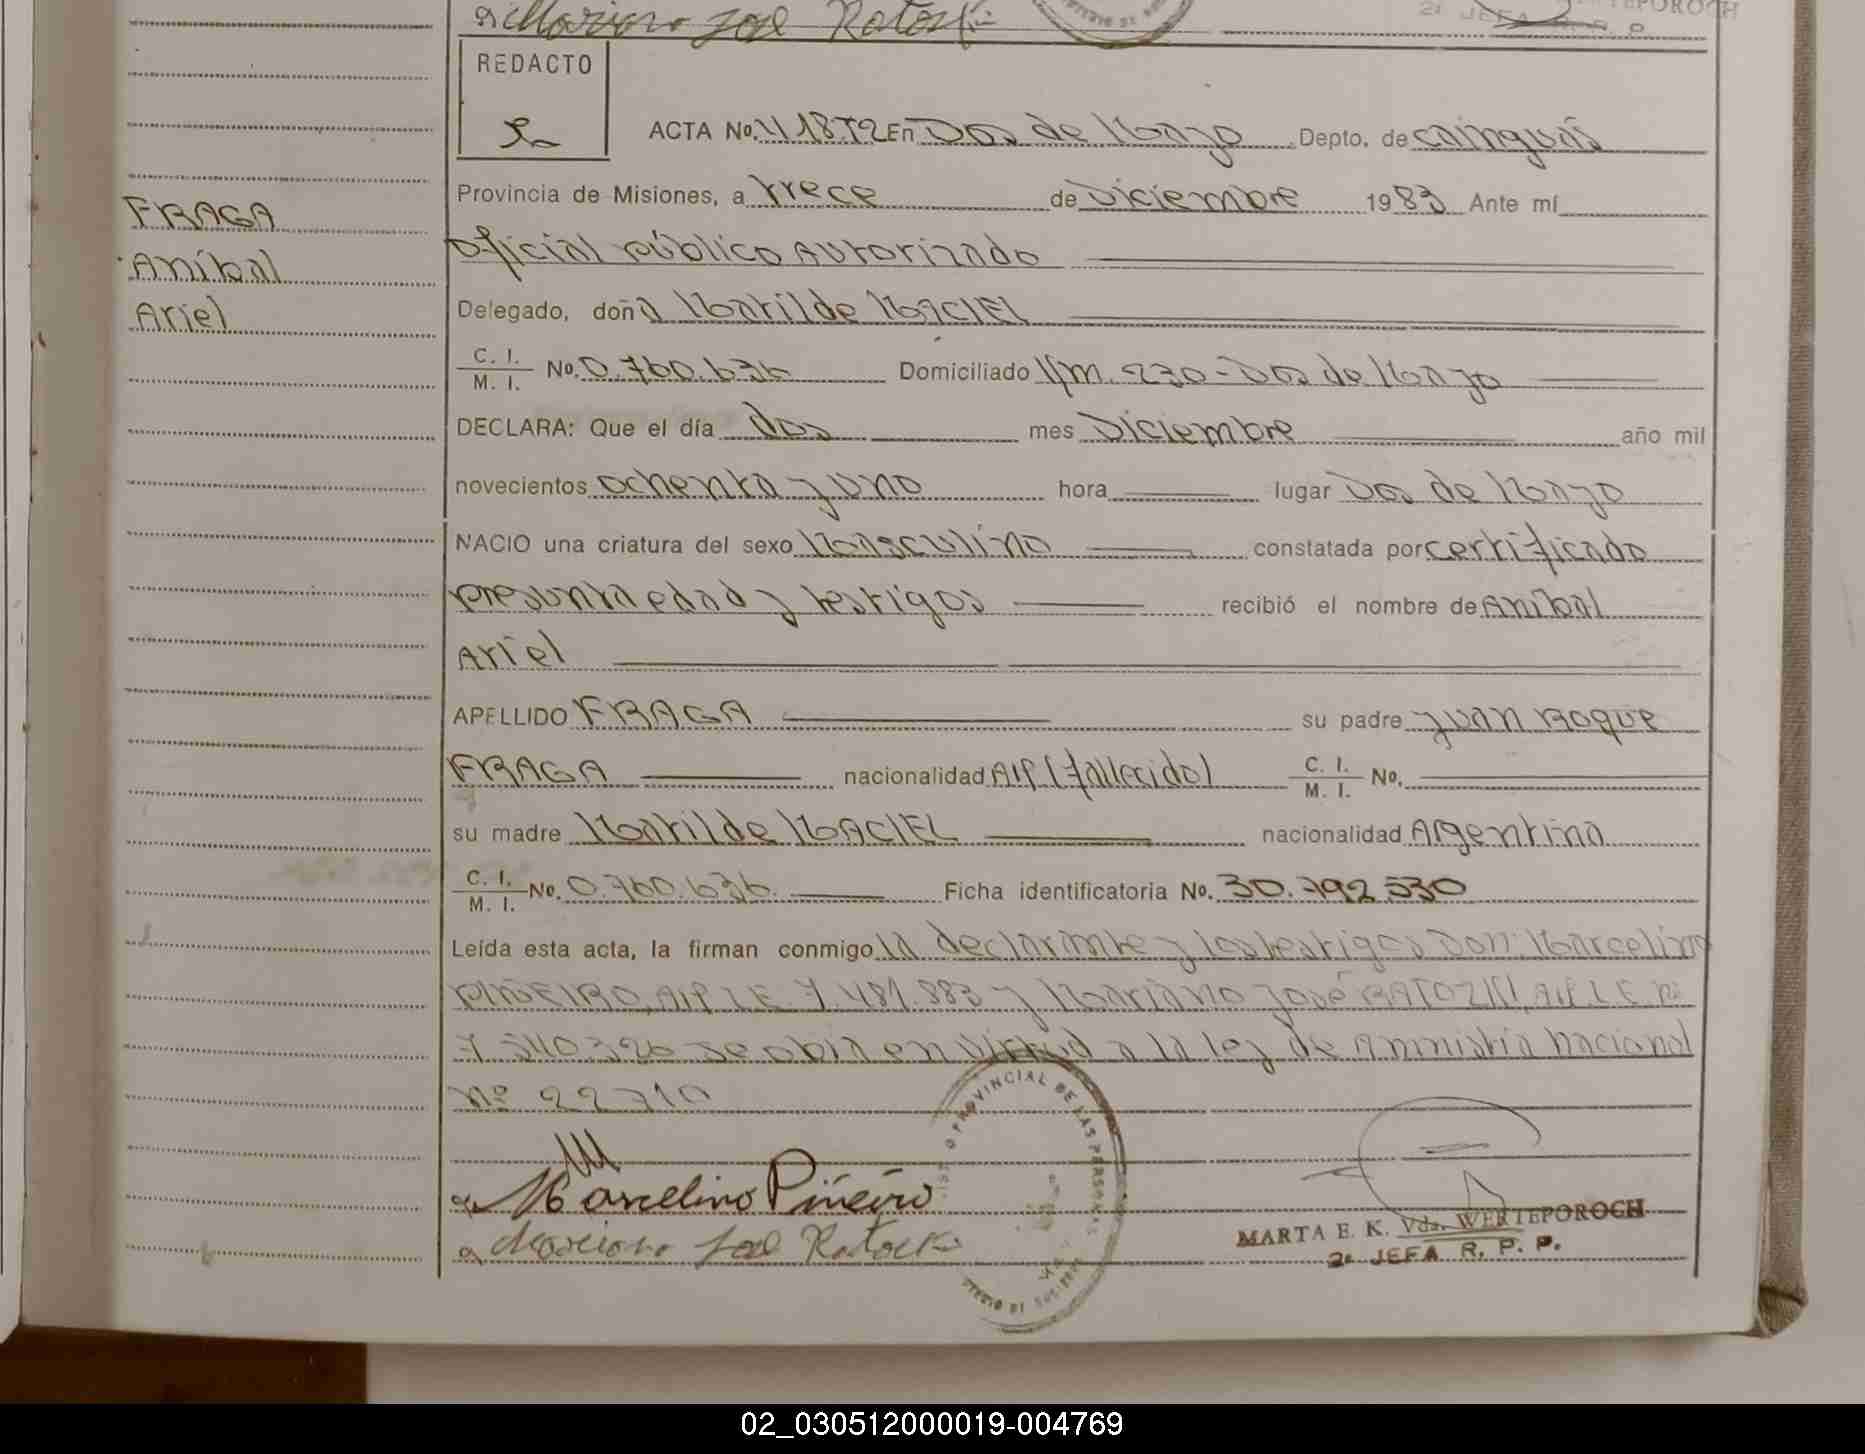 a Mariano José Ratoski
2a JEFA R. P. P.
REDACTO
ACTA No. En Dos de Mayo Depto. de Cainguás
Provincia de Misiones, a trece de Diciembre 1983 Ante mí
FRAGA
Oficial público Autorizado
Aníbal
Delegado, doña Matilde MACIEL
Ariel
C. I. M. I. No. 0.760.636 Domiciliado Km. 230 - Dos de Mayo
DECLARA: Que el día dos mes Diciembre año mil
novecientos ochenta y uno hora lugar Dos de Mayo
NACIO una criatura del sexo Masculino constatada por certificado
presunta edad y testigos recibió el nombre de Aníbal
Ariel
APELLIDO FRAGA su padre Juan Roque
FRAGA nacionalidad Arg (fallecido) C. I. M. I. No.
su madre Matilde MACIEL nacionalidad Argentina
C. I. M. I. No. 0.760.636. Ficha identificatoria No. 30.792.530
Leída esta acta, la firman conmigo la declarante y los testigos Don: Marcelino
PIÑEIRO, Arg L E. 7.481.883 y Mariano José RATOZKI, Arg L E Nº
7 540.326 se obia en virtud a la ley de Amnistía Nacional
Nº 22710
Marcelino Piñeiro
a Mariano José Ratoski
O PROVINCIAL DE LAS PERSONAS
MARTA E. K. Vda. WERTEPOROCH
2a JEFA R. P. P.
02_030512000019-004769